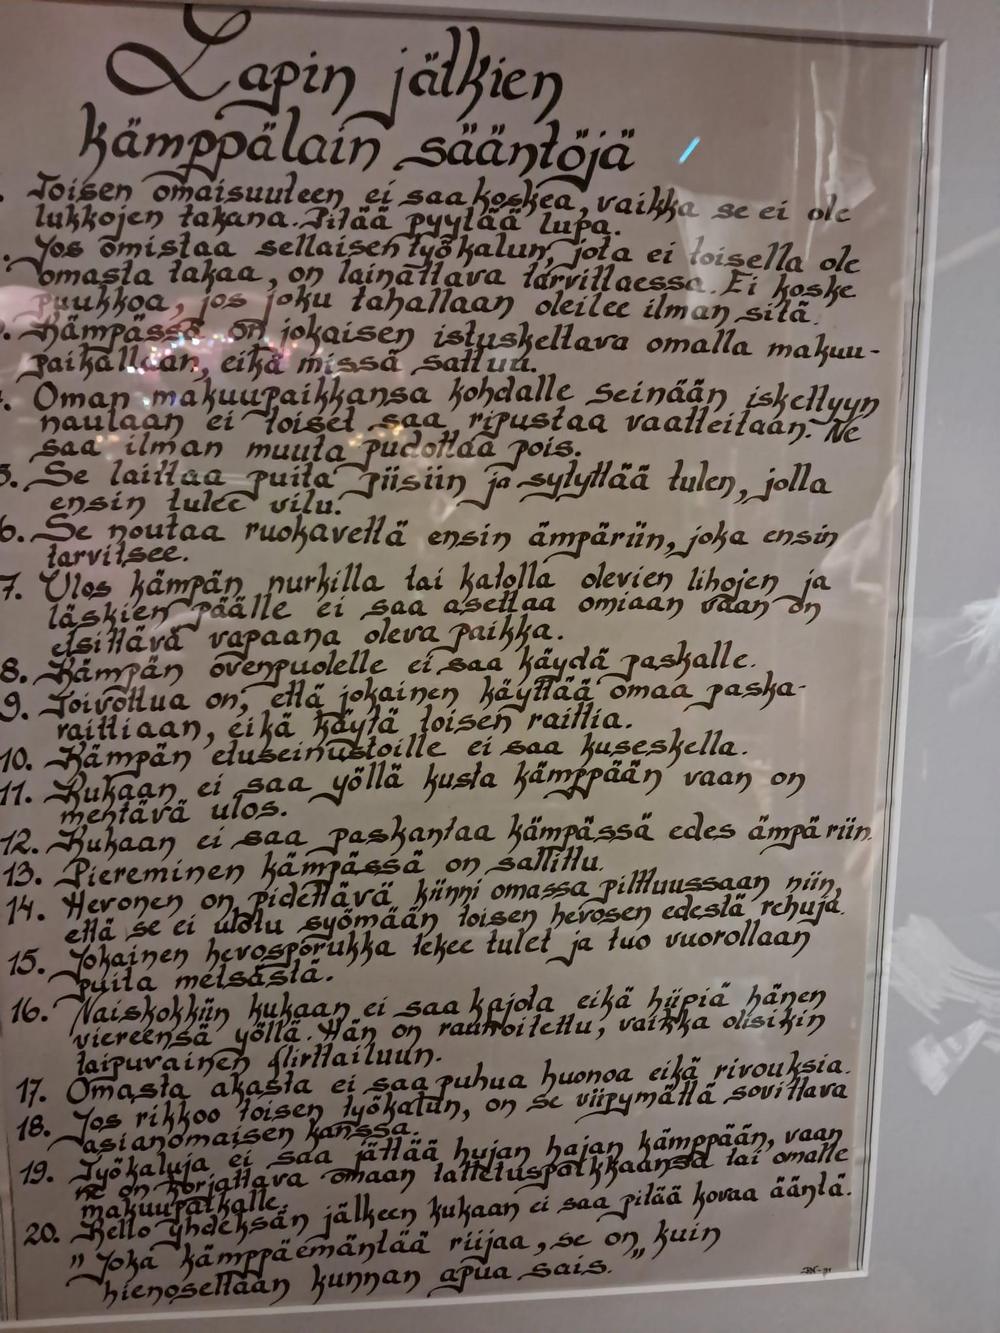 Lapin jätkien
kämppälain sääntöjä
Toisen omaisuuteen ei saa koskea, vaikka se ei ole
lukkojen takana. Pitää pyytää lupa.
Jos omistaa sellaisen työkalun, jota ei toisella ole
omasta takaa, on lainattava tarvittaessa. Ei koske
puukkoa, jos joku tahallaan oleilee ilman sitä.
Kämpässä on jokaisen istuskeltava omalla makuu-
paikallaan, eikä missä sattuu.
Oman makuupaikkansa kohdalle seinään iskettyyn
naulaan ei toiset saa ripustaa vaatteitaan. Ne
saa ilman muuta pudottaa pois.
5. Se laittaa puita piisiin ja sytyttää tulen, jolla
ensin tulee vilu.
6. Se noutaa ruokavettä ensin ämpäriin, joka ensin
tarvitsee.
7. Ulos kämpän nurkilla tai katolla olevien lihojen ja
läskien päälle ei saa asettaa omiaan vaan on
etsittävä vapaana oleva paikka.
8. Kämpän ovenpuolelle ei saa käydä paskalle.
9. Toivottua on, että jokainen käyttää omaa paska-
raittiaan, eikä käytä toisen raittia.
10. Kämpän etuseinustoille ei saa kuseskella.
11. Kukaan ei saa yöllä kusta kämppään vaan on
mentävä ulos.
12. Kukaan ei saa paskantaa kämpässä edes ämpäriin.
13. Piereminen kämpässä on sallittu.
14. Hevonen on pidettävä kiinni omassa pilttuussaan niin,
että se ei ulotu syömään toisen hevosen edestä rehuja.
15. Jokainen hevosporukka tekee tulet ja tuo vuorollaan
puita metsästä.
16. Naiskokkiin kukaan ei saa kajota eikä hiipiä hänen
viereensä yöllä. Hän on rauhoitettu, vaikka olisikin
taipuvainen flirttailuun.
17. Omasta akasta ei saa puhua huonoa eikä rivouksia.
18. Jos rikkoo toisen työkalun, on se viipymättä sovittava
asianomaisen kanssa.
19. Työkaluja ei saa jättää hujan hajan kämppään, vaan
ne on korjattava omaan talletuspaikkaansa tai omalle
makuupaikalle.
20. Kello yhdeksän jälkeen kukaan ei saa pitää kovaa ääntä.
"Joka kämppäemäntää riijaa, se on kuin
hienosettään kunnan apua sais."